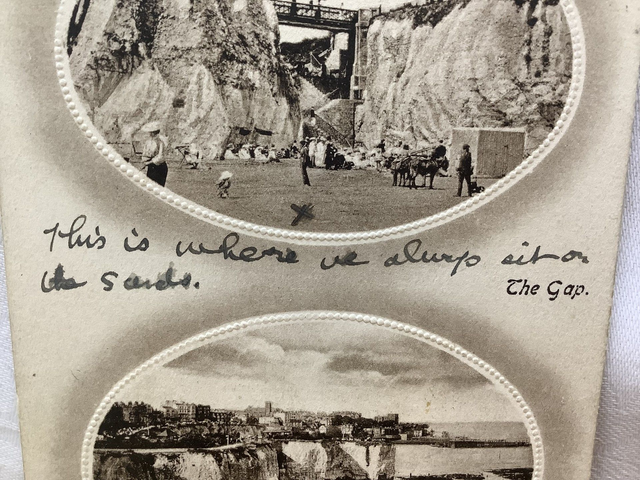 This is where we always sit on
the sands.
The Gap.